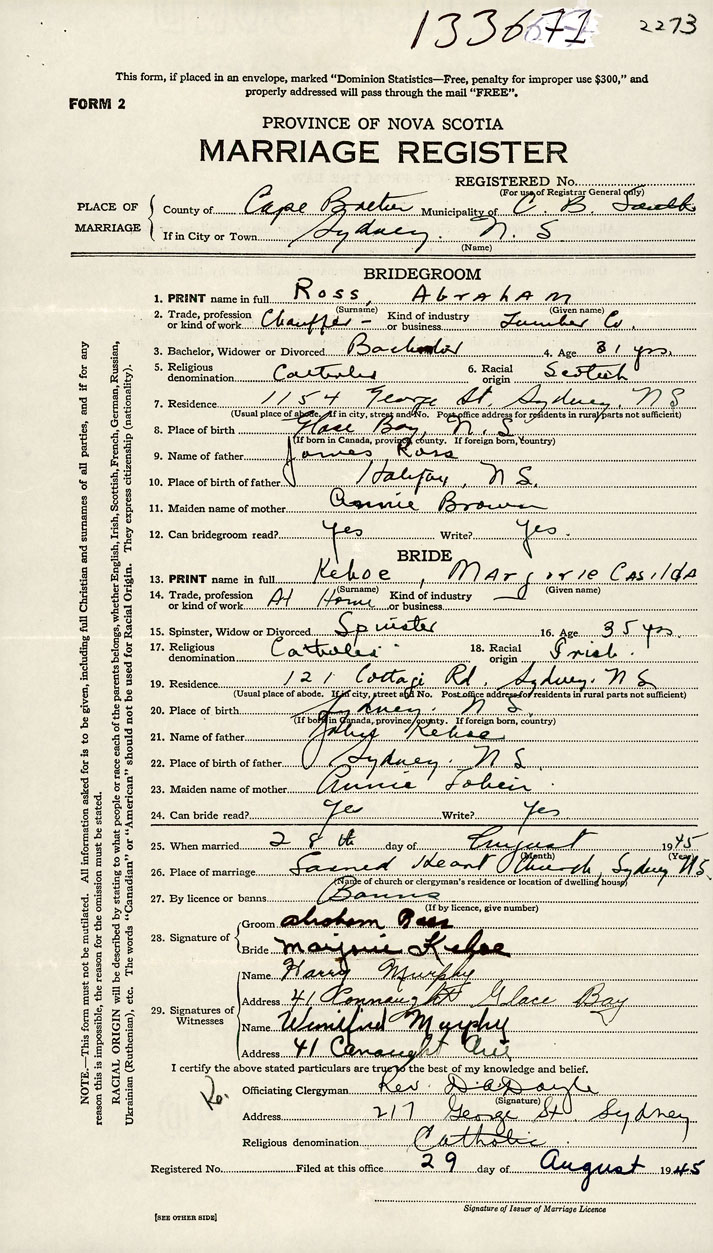 133671 2273
This form, if placed in an envelope, marked "Dominion Statistics—Free, penalty for improper use $300," and
properly addressed will pass through the mail "FREE".
FORM 2
PROVINCE OF NOVA SCOTIA
MARRIAGE REGISTER
REGISTERED No.
(For use of Registrar General only)
PLACE OF MARRIAGE
County of Cape Breton Municipality of C. B. South
If in City or Town Sydney. N. S
(Name)
BRIDEGROOM
1. PRINT name in full Ross, Abraham
(Surname) (Given name)
2. Trade, profession or kind of work Chauffer - Kind of industry or business Lumber Co.
3. Bachelor, Widower or Divorced Bachelor 4. Age 31 yrs.
5. Religious denomination Catholic 6. Racial origin Scotish
7. Residence 1154 George St Sydney. NS
(Usual place of abode. If in city, street and No. Post office address for residents in rural parts not sufficient)
8. Place of birth Glace Bay, N. S
(If born in Canada, province, county. If foreign born, country)
9. Name of father James Ross
10. Place of birth of father Halifax, N S.
11. Maiden name of mother Annie Brown
12. Can bridegroom read? Yes Write? Yes.
BRIDE
13. PRINT name in full Kehoe, Margorie Casilda
(Surname) (Given name)
14. Trade, profession or kind of work At Home Kind of industry or business —
15. Spinster, Widow or Divorced Spinster 16. Age 35 yrs.
17. Religious denomination Catholic 18. Racial origin Irish.
19. Residence 121 Cottage Rd. Sydney. N S
(Usual place of abode. If in city, street and No. Post office address for residents in rural parts not sufficient)
20. Place of birth Sydney. N S.
(If born in Canada, province/county. If foreign born, country)
21. Name of father John Kehoe
22. Place of birth of father Sydney. N S
23. Maiden name of mother Annie Tobin
24. Can bride read? Yes Write? Yes
25. When married 28th day of August 1945
(Month) (Year)
26. Place of marriage Sacred Heart Church, Sydney N.S.
(Name of church or clergyman's residence or location of dwelling house)
27. By licence or banns Banns
(If by licence, give number)
28. Signature of
Groom Abraham Ross
Bride Marjorie Kehoe
29. Signatures of Witnesses
Name Harry Murphy
Address 41 Connaught Glace Bay
Name Winifred Murphy
Address 41 Conaught Ave
I certify the above stated particulars are true to the best of my knowledge and belief.
Officiating Clergyman Rev. D. A Doyle
(Signature)
Address 217 George St. Sydney
Religious denomination Catholic.
Registered No. Filed at this office 29 day of August 1945
Signature of Issuer of Marriage Licence
[SEE OTHER SIDE]
NOTE.—This form must not be mutilated. All information asked for is to be given, including full Christian and surnames of all parties, and if for any
reason this is impossible, the reason for the omission must be stated.
RACIAL ORIGIN will be described by stating to what people or race each of the parents belongs, whether English, Irish, Scottish, French, German, Russian,
Ukrainian (Ruthenian), etc. The words "Canadian" or "American" should not be used for Racial Origin. They express citizenship (nationality).